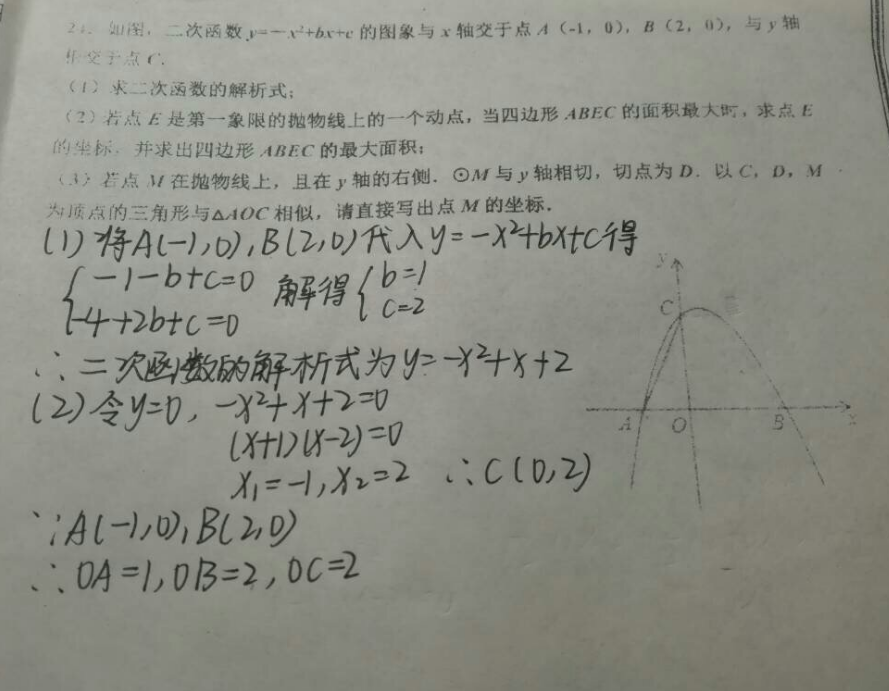 如图，二次函数y=-x²+bx+c的图象与x轴交于点A（-1，0），B（2，0），与y轴
相交于点C．
（1）求二次函数的解析式；
（2）若点E是第一象限的抛物线上的一个动点，当四边形ABEC的面积最大时，求点E
的坐标，并求出四边形ABEC的最大面积；
（3）若点M在抛物线上，且在y轴的右侧．⊙M与y轴相切，切点为D．以C，D，M
为顶点的三角形与△AOC相似，请直接写出点M的坐标．
(1)将A(-1,0),B(2,0)代入y=-x²+bx+c得
{-1-b+c=0
-4+2b+c=0
解得{b=1
c=2
∴二次函数的解析式为y=-x²+x+2
(2)令y=0,-x²+x+2=0
(x+1)(x-2)=0
x₁=-1,x₂=2 ∴C(0,2)
∵A(-1,0),B(2,0)
∴OA=1,OB=2,OC=2
y
C
A O B x